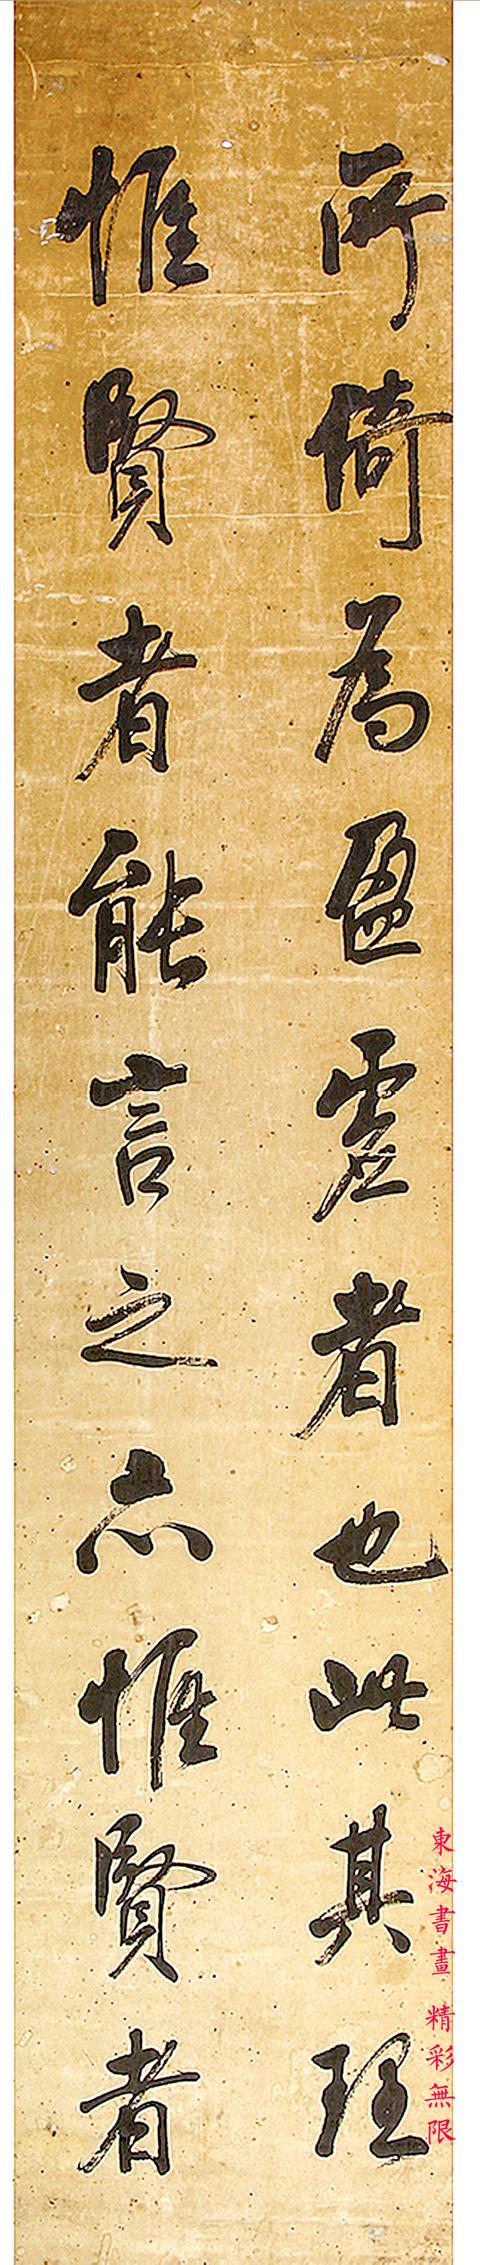 所倚為盈虛者也此其理
惟賢者能言之亦惟賢者
東海書畫 精彩無限